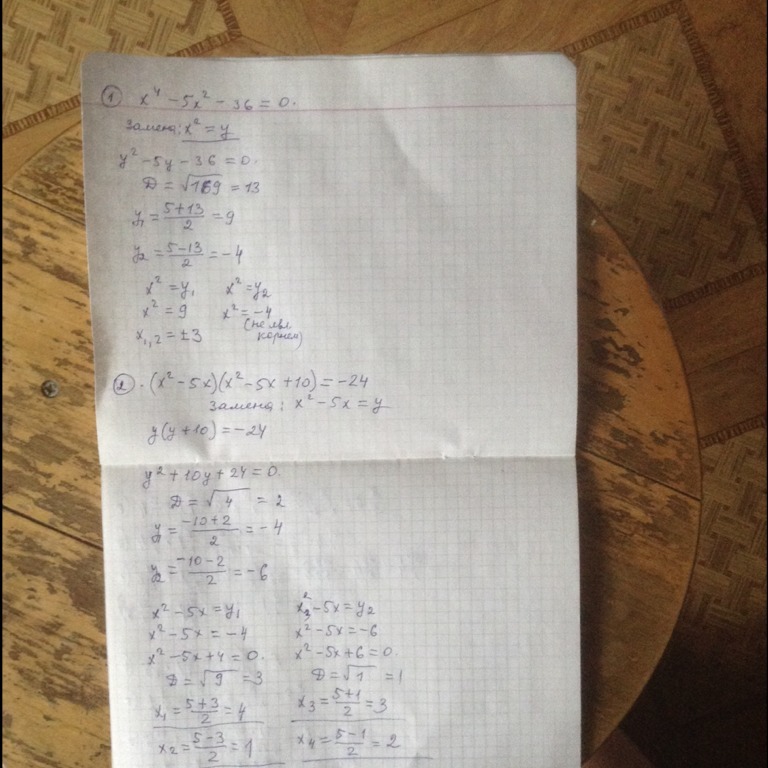 ① x⁴ - 5x² - 36 = 0.
Замена: x² = y
y² - 5y - 36 = 0.
D = √169 = 13
y₁ = (5+13)/2 = 9
y₂ = (5-13)/2 = -4
x² = y₁ x² = y₂
x² = 9 x² = -4
(не явл. корнем)
x₁,₂ = ±3
② (x² - 5x)(x² - 5x + 10) = -24
Замена: x² - 5x = y
y(y + 10) = -24
y² + 10y + 24 = 0.
D = √4 = 2
y₁ = (-10+2)/2 = -4
y₂ = (-10-2)/2 = -6
x² - 5x = y₁ x² - 5x = y₂
x² - 5x = -4 x² - 5x = -6
x² - 5x + 4 = 0. x² - 5x + 6 = 0.
D = √9 = 3 D = √1 = 1
x₁ = (5+3)/2 = 4 x₃ = (5+1)/2 = 3
x₂ = (5-3)/2 = 1 x₄ = (5-1)/2 = 2